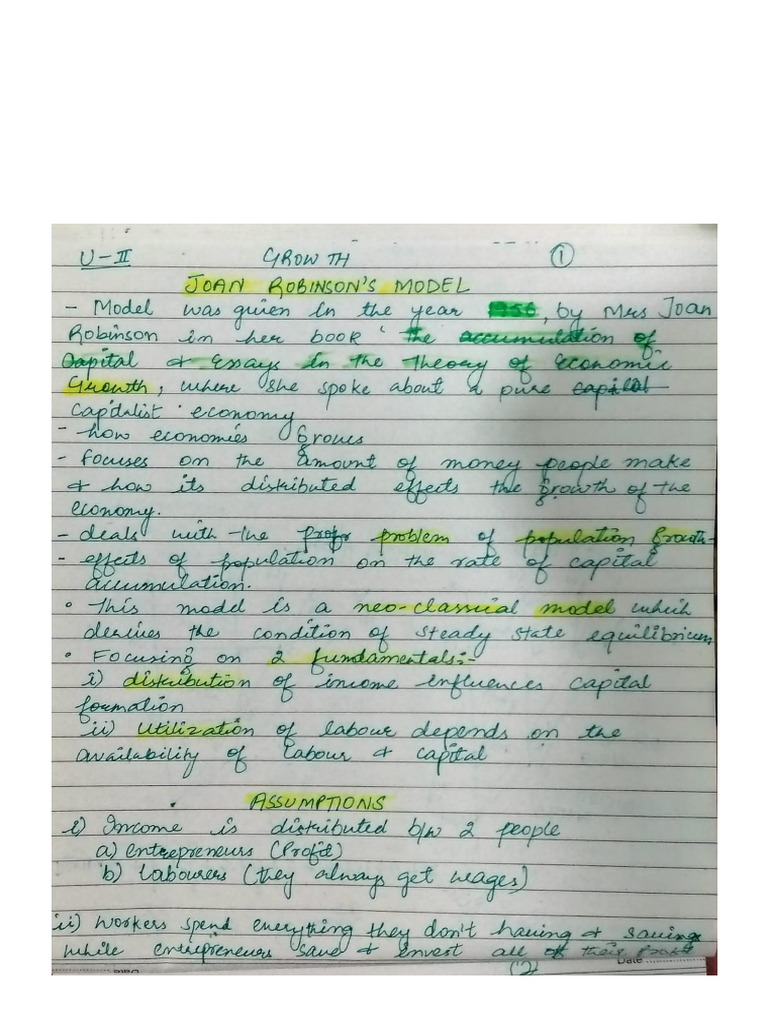 U-II GROWTH 1
JOAN ROBINSON'S MODEL
- Model was given in the year 1956, by Mrs Joan
Robinson in her book ' the accumulation of
Capital & Essays in the Theory of Economic
Growth, where she spoke about a pure capital
capitalist economy
- how economies Grows
- Focuses on the amount of money people make
& how its distributed effects the growth of the
economy.
- deals with the problem of population Growth
- effects of population on the rate of capital
accumulation.
• This model is a neo-classical model which
derives the condition of steady state equilibrium
• Focusing on 2 fundamentals:-
i) distribution of income influences capital
formation
ii) Utilization of labour depends on the
availability of labour & capital
ASSUMPTIONS
i) Income is distributed b/w 2 people
a) entrepreneurs (Profit)
b) labourers (they always get wages)
ii) Workers spend everything they don't having & saving
while entrepreneurs save & invest all of their profit
Date
(2)